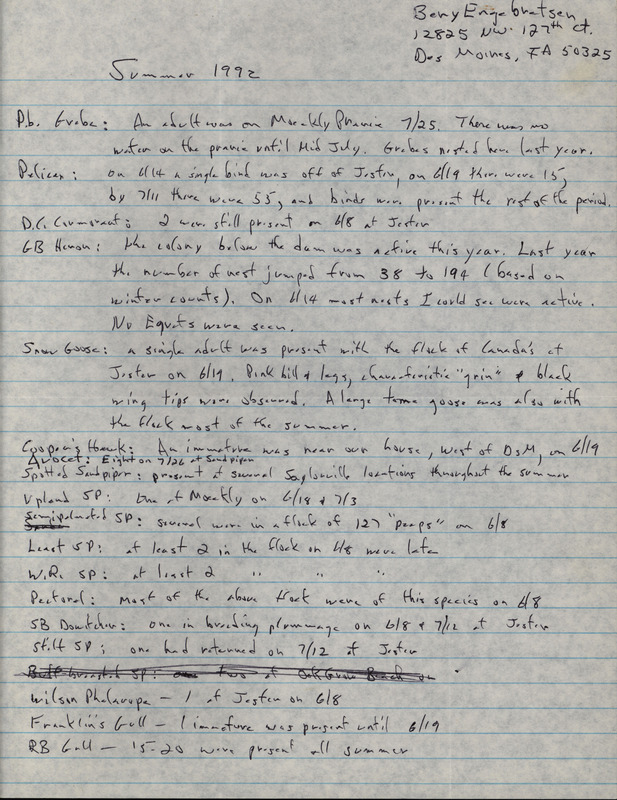 Bery Engebretsen
12825 NW. 127th Ct.
Des Moines, IA 50325
Summer 1992
P.b. Grebe: An adult was on Moeckly Prairie 7/25. There was no
water on the prairie until Mid July. Grebes nested here last year.
Pelican: on 6/14 a single bird was off of Jester, on 6/19 there were 15,
by 7/11 there were 55, and birds were present the rest of the period.
D.C. Cormorant: 2 were still present on 6/8 at Jester
GB Heron: the colony below the dam was active this year. Last year
the number of nest jumped from 38 to 194 (based on
winter counts). On 6/14 most nests I could see were active.
No Egrets were seen.
Snow Goose: a single adult was present with the flock of Canada's at
Jester on 6/19. Pink bill & legs, characteristic "grin" & black
wing tips were observed. A large tame goose was also with
the flock most of the summer.
Cooper's Hawk: An immature was near our house, west of DSM, on 6/19
Avocet: Eight on 7/26 at Sandpiper
Spotted Sandpiper: present at several Saylorville locations throughout the summer
Upland SP: One at Moeckly on 6/18 & 7/3
Semipalmated SP: several were in a flock of 127 "peeps" on 6/8
Least SP: at least 2 in the flock on 6/8 were late
W.R. SP: at least 2 " " "
Pectoral: Most of the above flock were of this species on 6/8
SB Dowitcher: one in breeding plummage on 6/8 & 7/12 at Jester
Stilt SP: one had returned on 7/12 at Jester
Buff breasted SP: two at Oak Grove Beach on
Wilson Phalarope - 1 at Jester on 6/8
Franklin's Gull - 1 immature was present until 6/19
RB Gull - 15-20 were present all summer